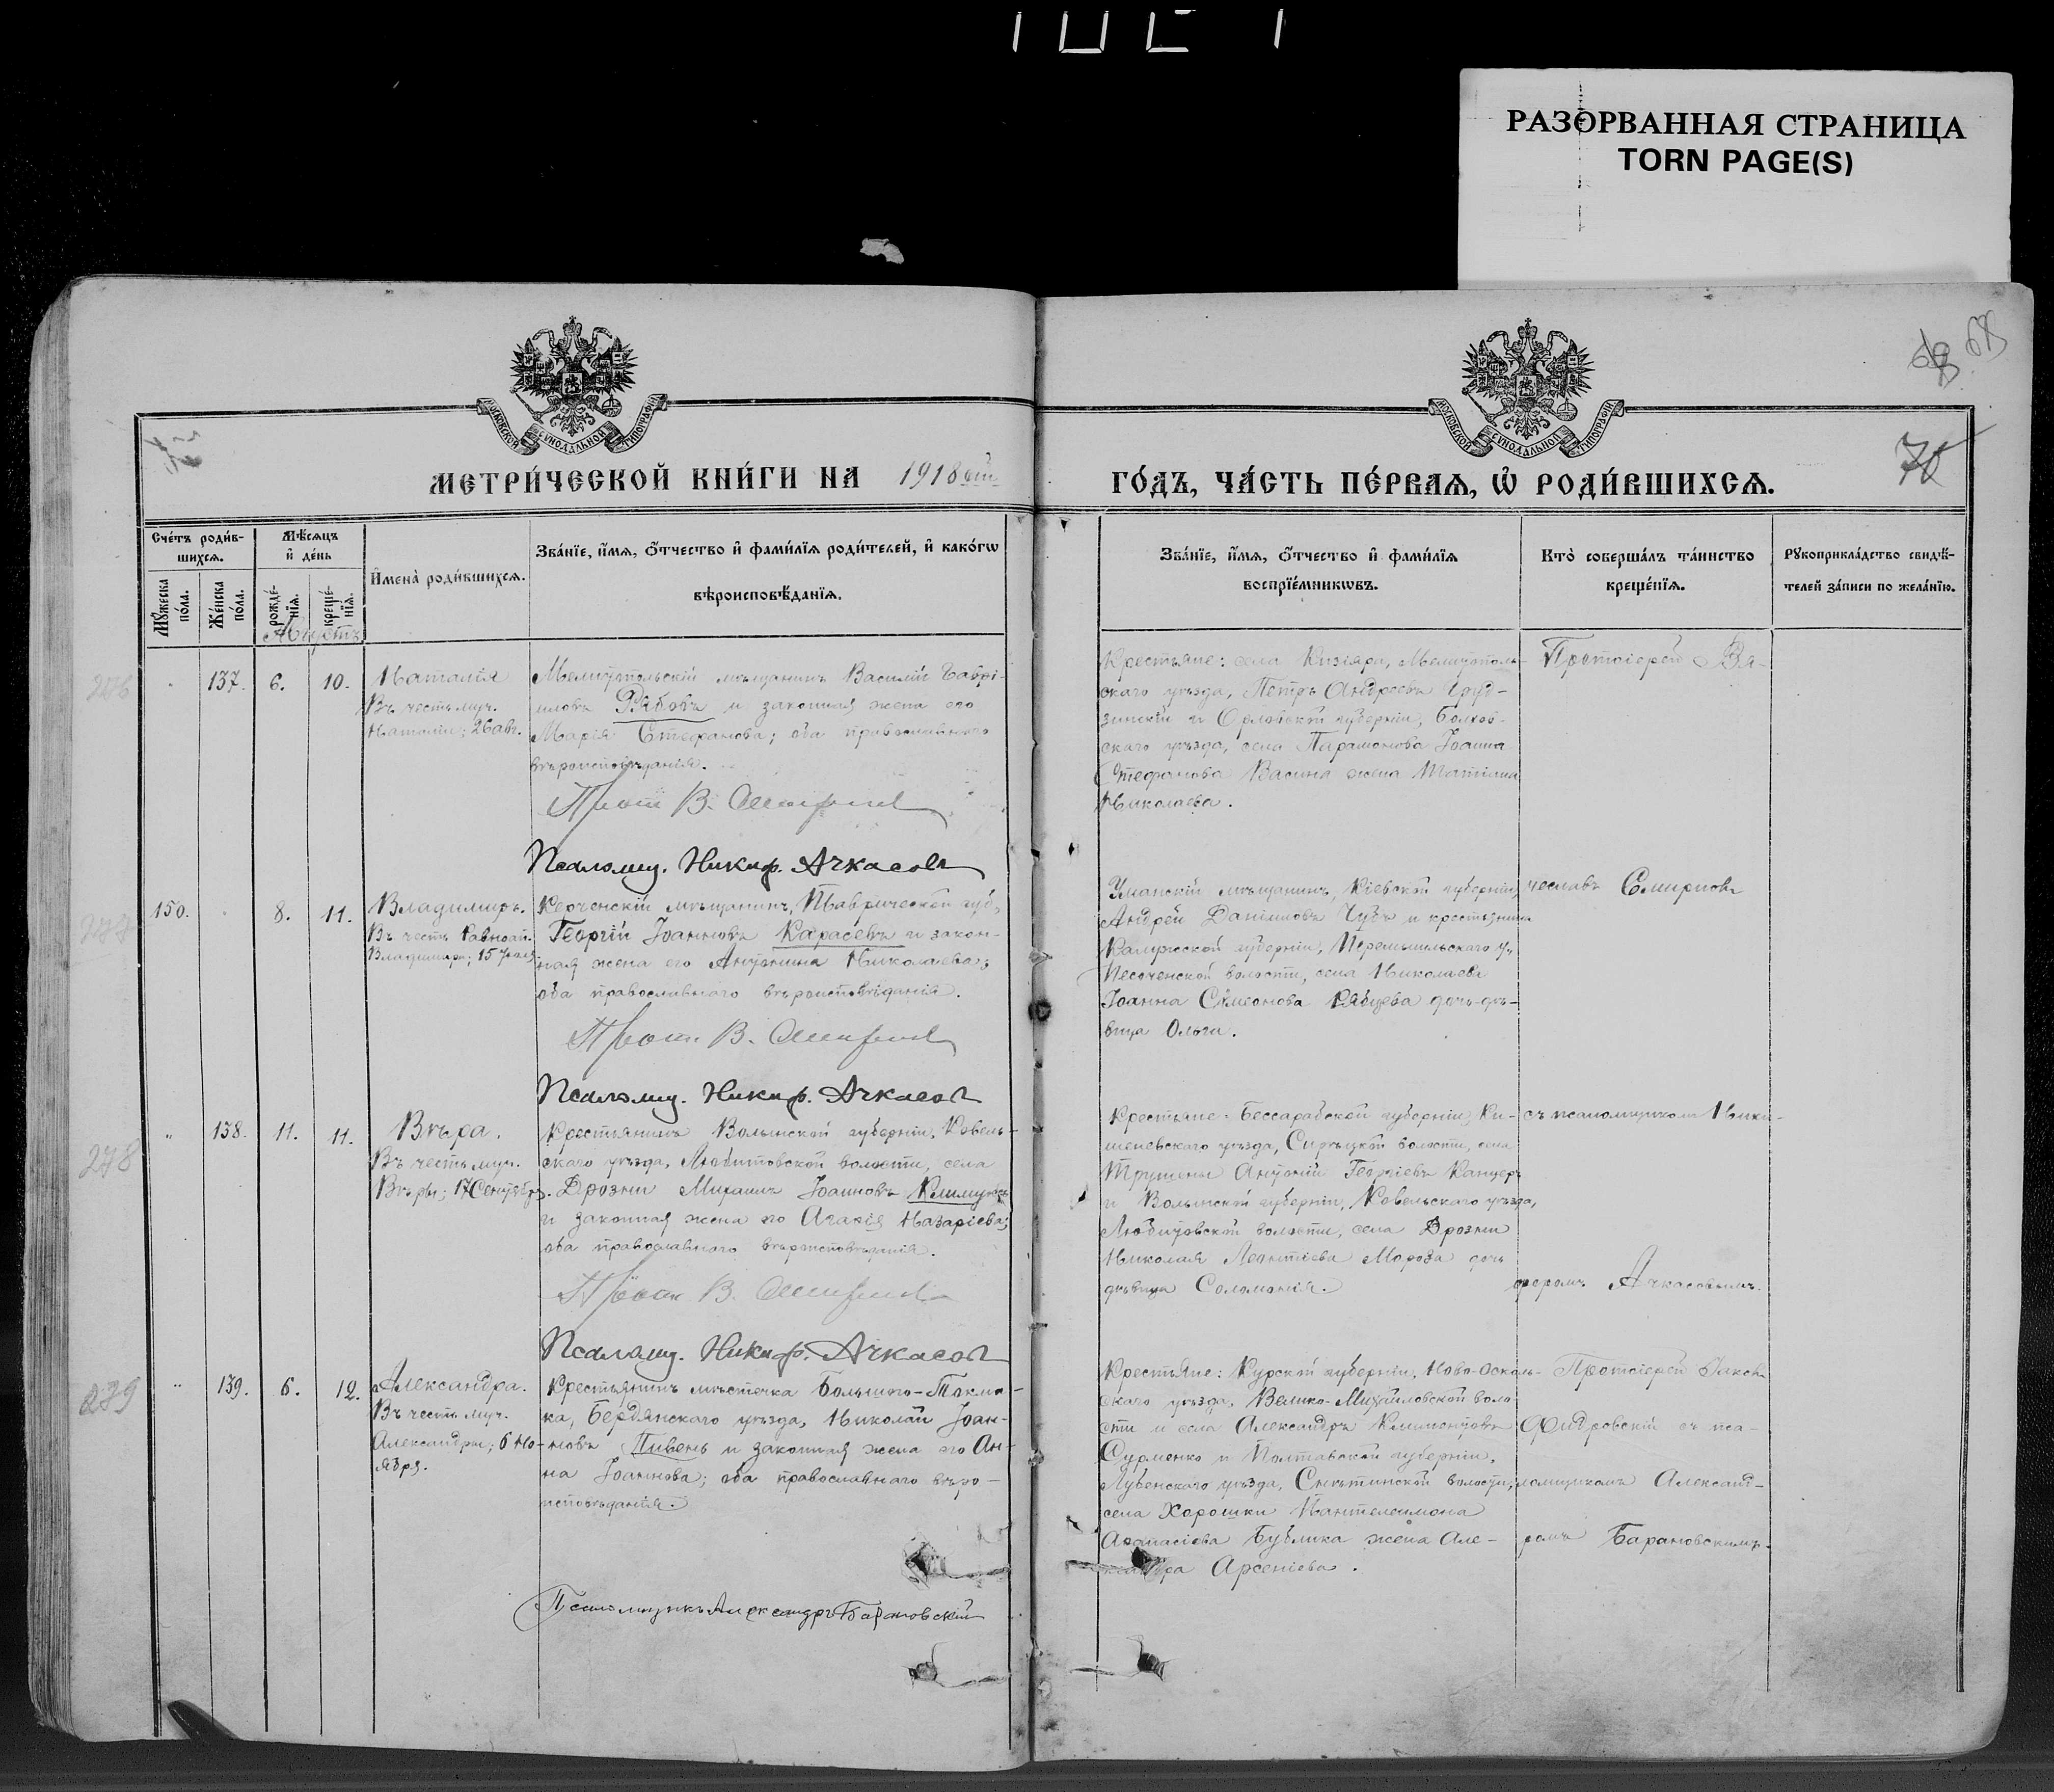 РАЗОРВАННАЯ СТРАНИЦА
TORN PAGE(S)
68
70
МОСКОВСКОЙ СѴНОДАЛЬНОЙ ТИПОГРАФІИ
МОСКОВСКОЙ СѴНОДАЛЬНОЙ ТИПОГРАФІИ
МЕТРИ́ЧЕСКОЙ КНИ́ГИ НА 1918 ый
ГО́ДЪ, ЧА́СТЬ ПЕ́РВАѦ, Ѡ҆ РОДИ́ВШИХСѦ.
Сче́тъ роди́в-
шихсѧ.
Мꙋ́жеска по́ла.
Же́нска по́ла.
Мѣ́сѧцъ
и҆ де́нь
рожде́-
нїѧ.
креще́-
нїѧ.
И҆мена̀ роди́вшихсѧ.
Зва́нїе, и҆́мѧ, ѻ҆́тчество и҆ фами́лїѧ роди́телей, и҆ како́гѡ
вѣроисповѣ́данїѧ.
Зва́нїе, и҆́мѧ, ѻ҆́тчество и҆ фами́лїѧ
воспрїе́мникѡвъ.
Кто̀ соверша́лъ та́инство
креще́нїѧ.
Рꙋкоприкла́дство свидѣ́-
телей за́писи по жела́нїю.
Августъ
276
137. 6. 10.
Наталія
Въ честь муч.
Наталіи; 26 авг.
Мелитопольскій мѣщанинъ Василій Гаврі-
иловъ Рябовъ и законная жена его
Марія Стефанова; оба православнаго
вѣроисповѣданія.
Прот. В. Смирнов
Псаломщ. Никиф. Ачкасовъ
Крестьяне: села Кизіяра, Мелитополь-
скаго уѣзда, Петръ Андреевъ Груд-
зинскій и Орловской губерніи, Болхов-
скаго уѣзда, села Парамонова Іоанна
Стефанова Васина жена Татіана
Николаева.
Протоіерей Вя-
277
150. 8. 11.
Владиміръ.
Въ честь Равноап.
Владиміра; 15 Іюля
Керченскій мѣщанинъ, Таврической губ.,
Георгій Іоанновъ Карасевъ и закон-
ная жена его Антонина Николаева;
оба православнаго вѣроисповѣданія.
Прот. В. Смирнов
Псаломщ. Никиф. Ачкасов
Уманскій мѣщанинъ, Кіевской губерніи,
Андрей Даніиловъ Чубъ и крестьянина
Калужской губерніи, Перемышльскаго у.,
Песоченской волости, села Николаева
Іоанна Симеонова Рябцева дочь-дѣ-
вица Ольга.
чеславъ Смирновъ
278
138. 11. 11.
Вѣра.
Въ честь муч.
Вѣры; 17 Сентября.
Крестьянинъ Волынской губерніи, Ковель-
скаго уѣзда, Любитовской волости, села
Дрозни Михаилъ Іоанновъ Климукъ
и законная жена его Агафія Назаріева;
оба православнаго вѣроисповѣданія.
Прот. В. Смирнов
Псаломщ. Никиф. Ачкасов
Крестьяне: Бессарабской губерніи, Ки-
шеневскаго уѣзда, Сирѣцкой волости, села
Трушены Антоній Георгіевъ Канцеръ
и Волынской губерніи, Ковельскаго уѣзда,
Любитовской волости, села Дрозни
Николая Леонтіева Мороза дочь
дѣвица Соломонія.
съ псаломщикомъ Ники-
форомъ Ачкасовымъ.
279
139. 6. 12.
Александра.
Въ честь муч.
Александры; 6 Но-
ября.
Крестьянинъ мѣстечка Большого-Токма-
ка, Бердянскаго уѣзда, Николай Іоан-
новъ Пивень и законная жена его Ан-
на Іоаннова; оба православнаго вѣро-
исповѣданія.
Псаломщикъ Александръ Барановскій
Крестьяне: Курской губерніи, Ново-Осколь-
скаго уѣзда, Велико-Михайловской воло-
сти и села Александръ Климентовъ
Сурменко и Полтавской губерніи,
Лубенскаго уѣзда, Снѣтинской волости,
села Хорошки Пантелеимона
Аѳанасіева Бублика жена Але-
ксандра Арсеніева.
Протоіерей
съ пса-
ломщикомъ Александ-
ромъ Барановскимъ.